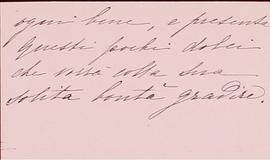 ogni bene, e presenta
questi pochi dolci
che vorrà colla sua
solita bontà gradire.